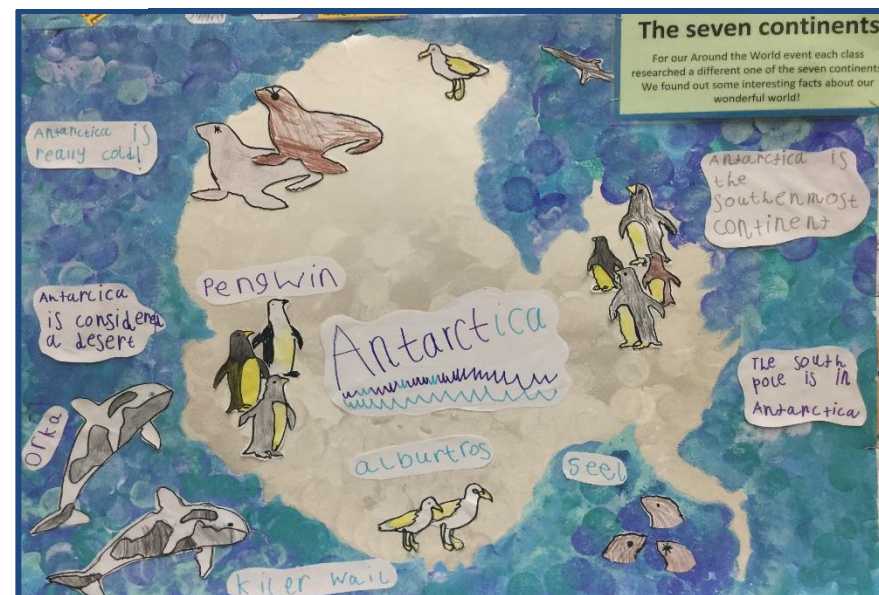 The seven continents
For our Around the World event each class
researched a different one of the seven continents
We found out some interesting facts about our
wonderful world!
Antarctica is
really cold!
Antarctica is
the
southenmost
continent
Pengwin
Antarcica
is considered
a desert
Antarctica
The south
pole is in
Antarctica
orka
alburtros
seel
Kiler wail